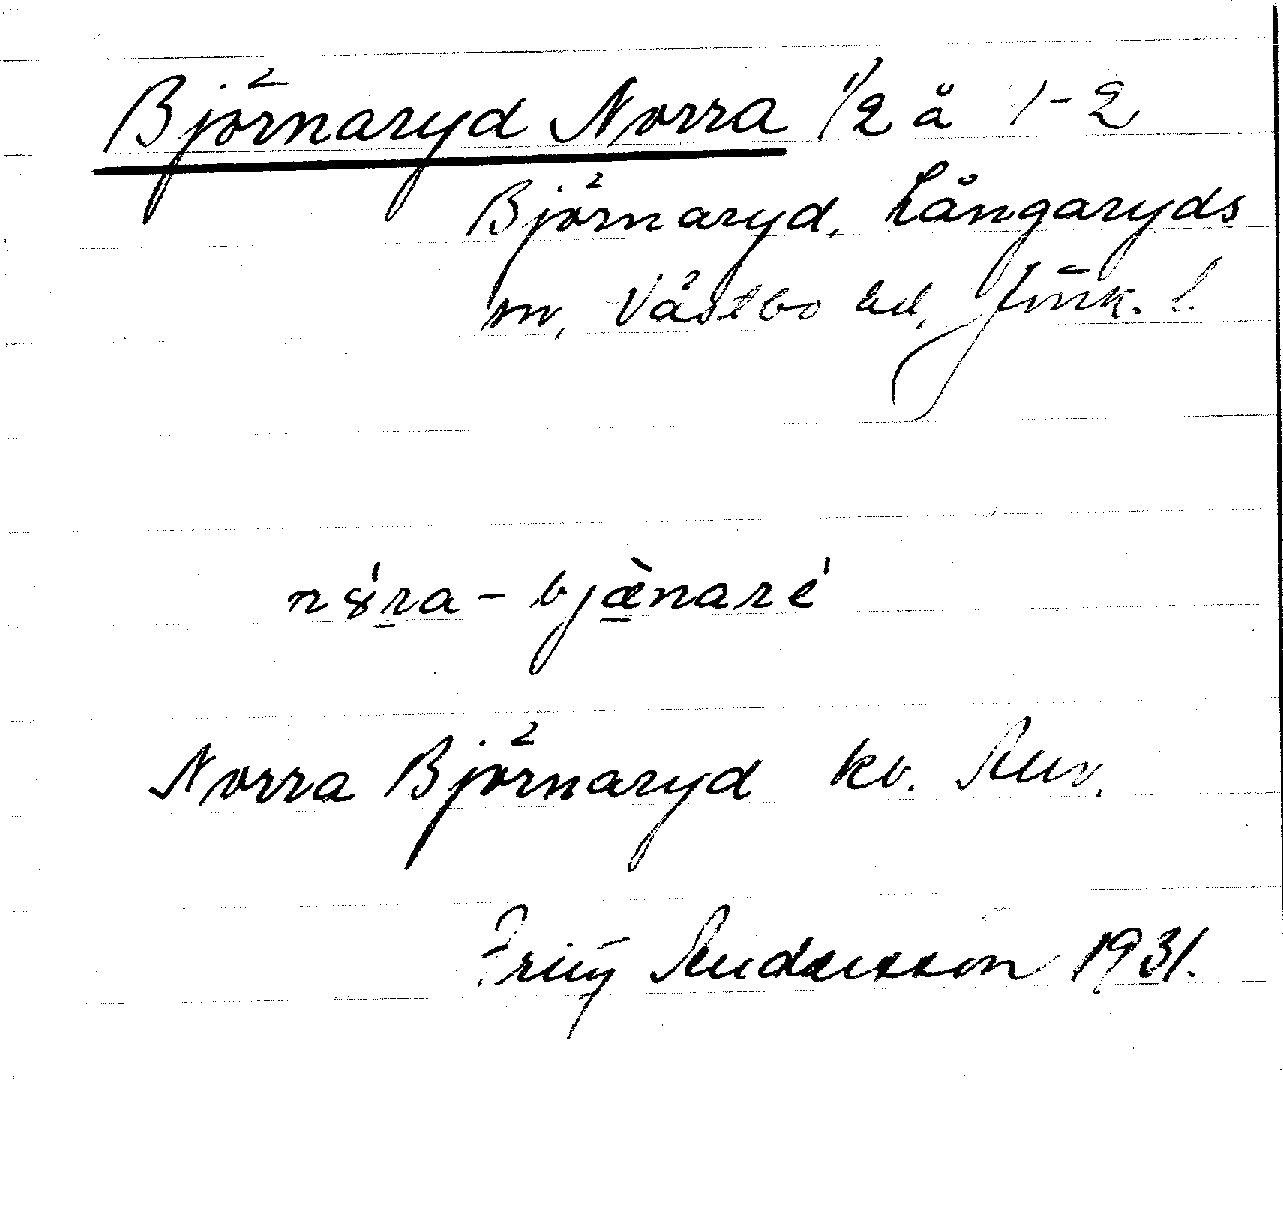 Björnaryd Norra 1/2 å 1-2
Björnaryd, Långaryds
sn, Västbo hd, Jönk. l.
nɤ́ra - bjæ̀naré
Norra Björnaryd kv. Anv.
Andersson 1931.